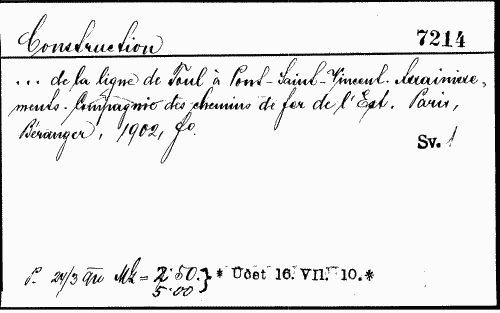 Construction 7214
... de la ligne de Toul à Pont-Saint-Vincent. Assainisse-
ments. Compagnie des chemins de fer de l'Est. Paris,
Béranger, 1902, fo.
Sv. 1
24/3 Mk = 2.50.} * Udet 16. VII. 10. *
5.00